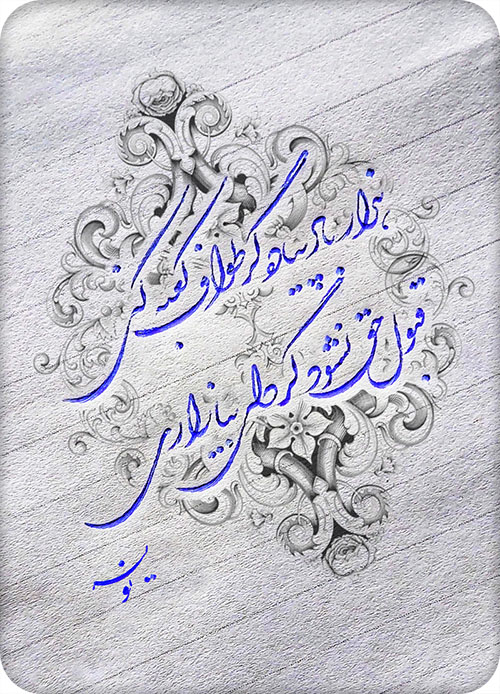 هزار بار پیاده گر طواف کعبه کنی
قبول حق نشود گر دلی بیازاری